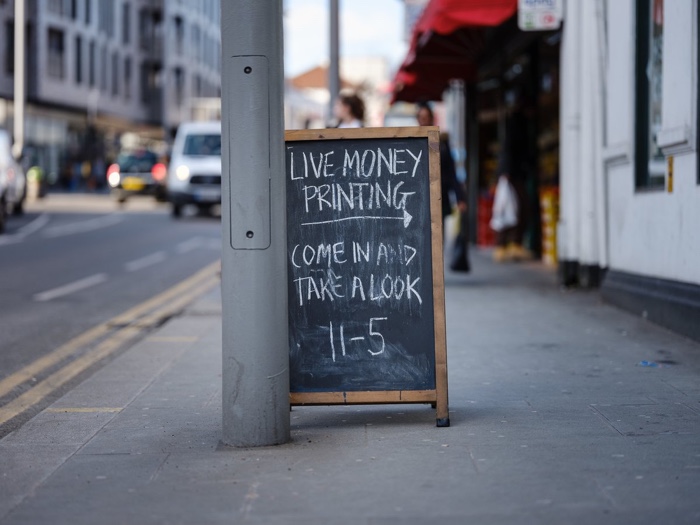 LIVE MONEY
PRINTING
COME IN AND
TAKE A LOOK
11-5